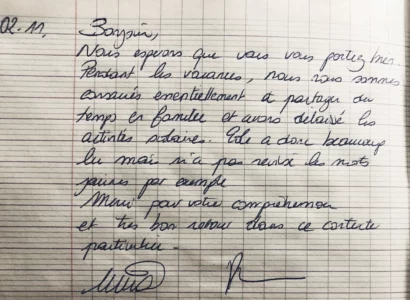 02.11.
Bonjour,
Nous espérons que vous vous portez bien.
Pendant les vacances, nous nous sommes
consacrés essentiellement à partager du
temps en famille et avons délaissé les
activités scolaires. Elle a donc beaucoup
lu mais n'a pas revu les mots
jaunes par exemple
Merci pour votre compréhension
et très bon retour dans ce contexte
particulier.